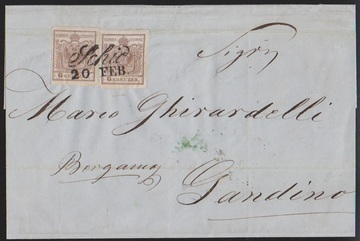 Schio
20 FEB.
6 KREUZER 6 KREUZER
Sigr
Marco Ghirardelli
Bergamo
Gandino